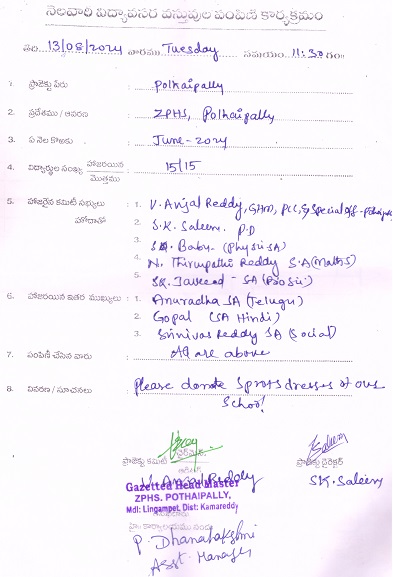 నెలవారి విద్యావసర వస్తువుల పంపిణి కార్యక్రమం
తేది 13/08/2024 వారము Tuesday సమయం 11:30 గం॥
1. ప్రాజెక్టు పేరు : Pothaipally
2. ప్రదేశము / ఆవరణ : ZPHS, Pothaipally
3. ఏ నెల కొఱకు : June-2024
4. విద్యార్థుల సంఖ్య హాజరయిన / మొత్తము : 15/15
5. హాజరైన కమిటి సభ్యులు : 1. V. Anjal Reddy, GHM, PCC, & Special off-Pothaipally
హోదాతో 2. S.K. Saleem. P.D
3. SK. Baby- (Physics SA)
4. N. Thirupathi Reddy S.A (Maths)
5. SK. Javeed - SA (Bio Sci)
6. హాజరయిన ఇతర ముఖ్యులు : 1. Anuradha SA (Telugu)
2. Gopal (SA Hindi)
3. Srinivas Reddy SA (Social)
7. పంపిణీ చేసిన వారు : All are above
8. వివరణ / సూచనలు : Please donate Sprots dresses of our
School
ప్రాజెక్టు కమిటీ చైర్మెన్ Saleem ప్రాజెక్టు డైరెక్టర్
V. Anjal Reddy SK. Saleem
Gazetted Head Master
ZPHS. POTHAIPALLY,
Mdl: Lingampet, Dist: Kamareddy
P. Dhanalakshmi
Asst. Manager